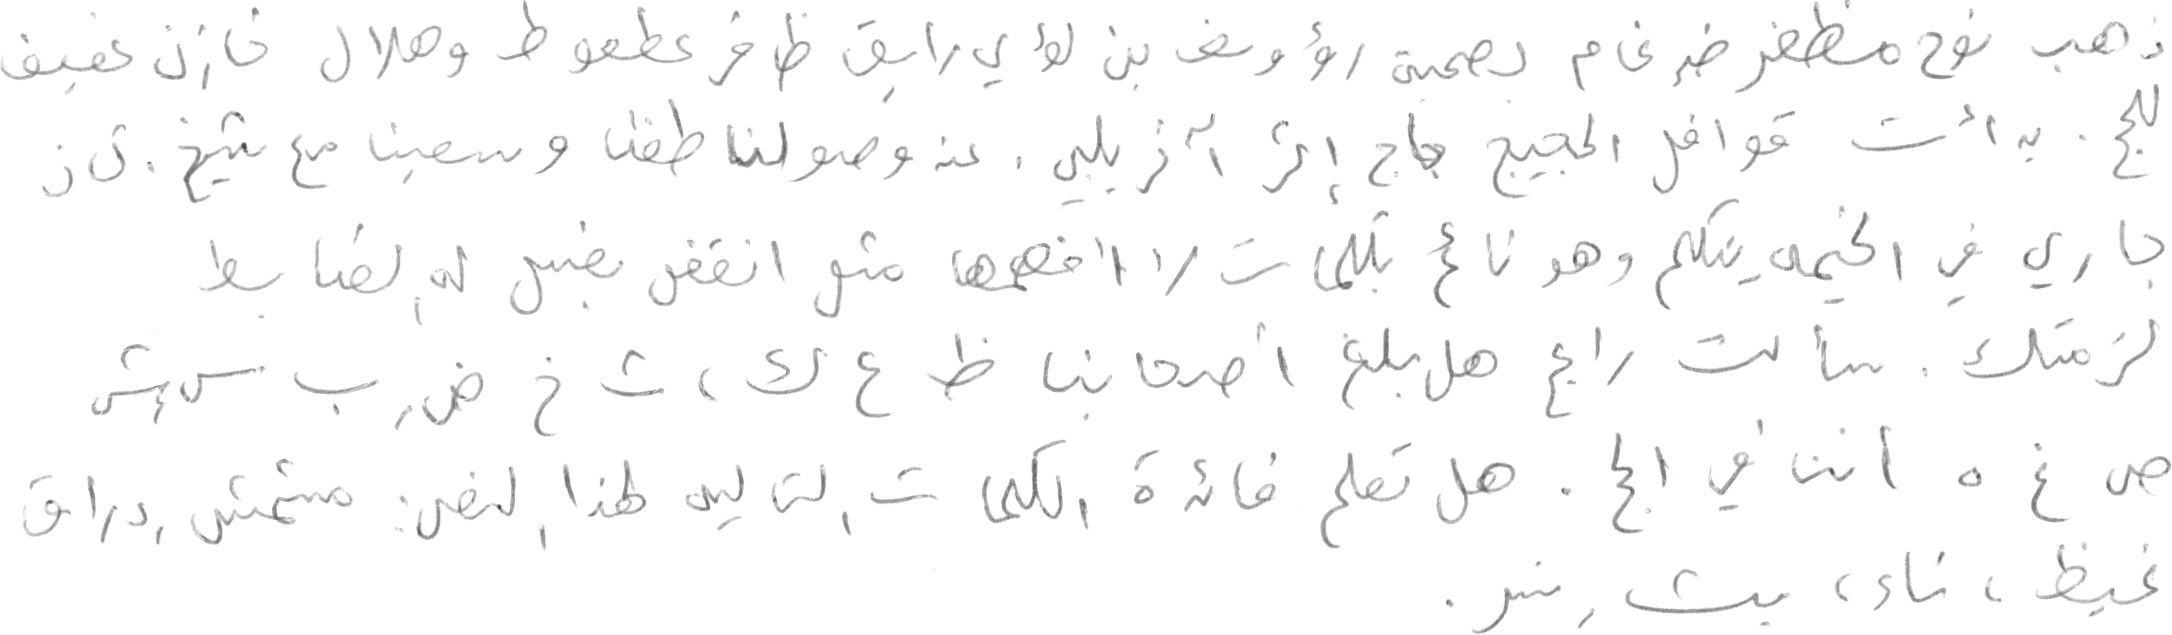 ذهب نوح مظفر ضرغام بصحبة رؤوف بن لؤي رائق ظافر عطعوط وهلال خازن عفيف
للحج . بدأت قوافل الحجيج حاج إثر آخر يلبي . عند وصولنا طفنا وسعينا مع شيخ . كان
جاري في الخيمة يتكلم وهو نائم بكلمات لا افهمها مثل انقض بغيض له إلضابط
لزمتك . سألت رابح هل بلغ أصحابنا ظ ع ك ، ث خ ض ب س ش
ص غ ه أننا في الحج . هل تعلم فائدة الكلمات التالية لهذا النص : مشمش ، دراق
غيظ ، ناي ، بيت ، نسر .